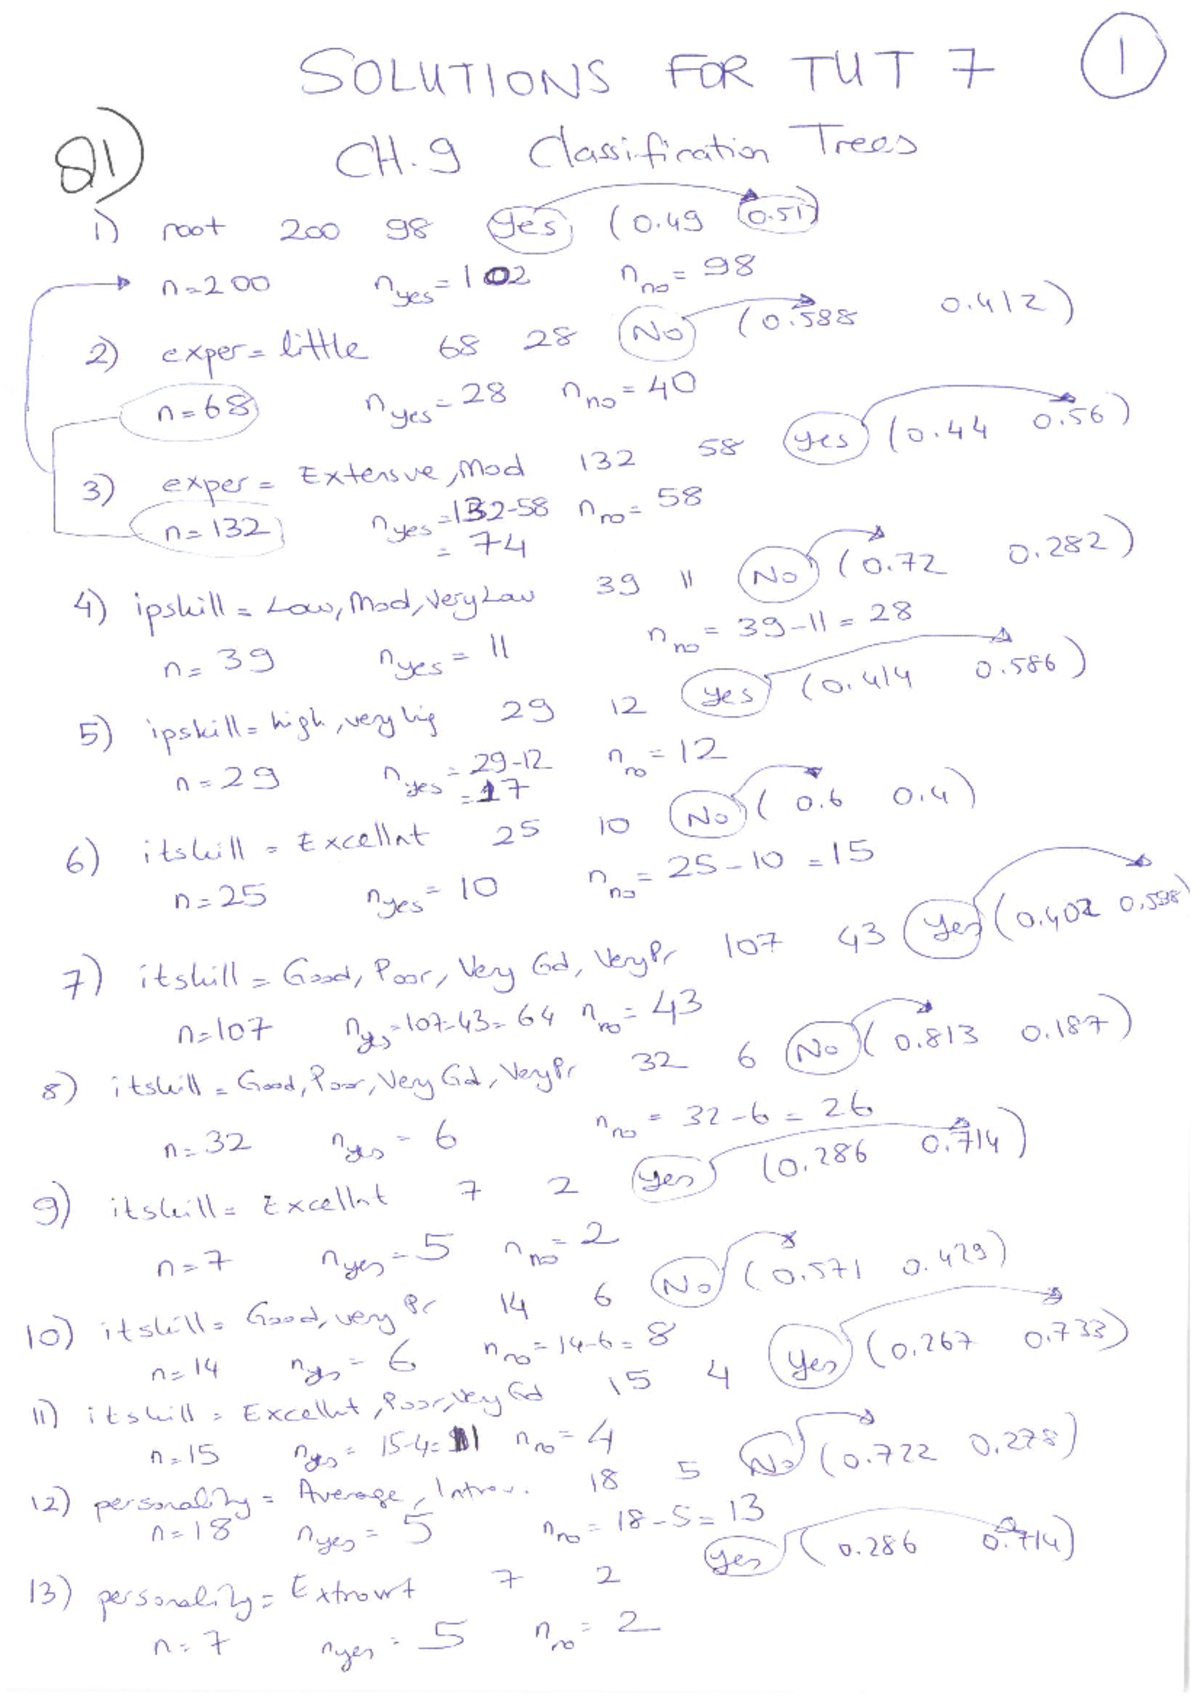 SOLUTIONS FOR TUT 7 1
Q1) CH.9 Classification Trees
1) root 200 98 Yes (0.49 0.51)
n=200 nyes=102 nno=98
2) exper=little 68 28 No (0.588 0.412)
n=68 nyes=28 nno=40
3) exper= Extensve,Mod 132 58 Yes (0.44 0.56)
n=132 nyes=132-58 nno=58
= 74
4) ipskill=Low,Mod,VeryLow 39 11 No (0.72 0.282)
n=39 nyes=11 nno=39-11=28
5) ipskill=high,very hig 29 12 Yes (0.414 0.586)
n=29 nyes=29-12 nno=12
=17
6) itskill=Excellnt 25 10 No (0.6 0.4)
n=25 nyes=10 nno=25-10=15
7) itskill=Good, Poor, Very Gd, VeryPr 107 43 Yes (0.402 0.598)
n=107 nyes=107-43=64 nno=43
8) itskill=Good,Poor,Very Gd,VeryPr 32 6 No (0.813 0.187)
n=32 nyes=6 nno=32-6=26
9) itskill=Excellnt 7 2 Yes (0.286 0.714)
n=7 nyes=5 nno=2
10) itskill=Good,very Pr 14 6 No (0.571 0.429)
n=14 nyes=6 nno=14-6=8
11) itskill=Excellnt,Poor,Very Gd 15 4 Yes (0.267 0.733)
n=15 nyes=15-4=11 nno=4
12) personality=Average,Introv. 18 5 No (0.722 0.278)
n=18 nyes=5 nno=18-5=13
13) personality=Extrovrt 7 2 Yes (0.286 0.714)
n=7 nyes=5 nno=2